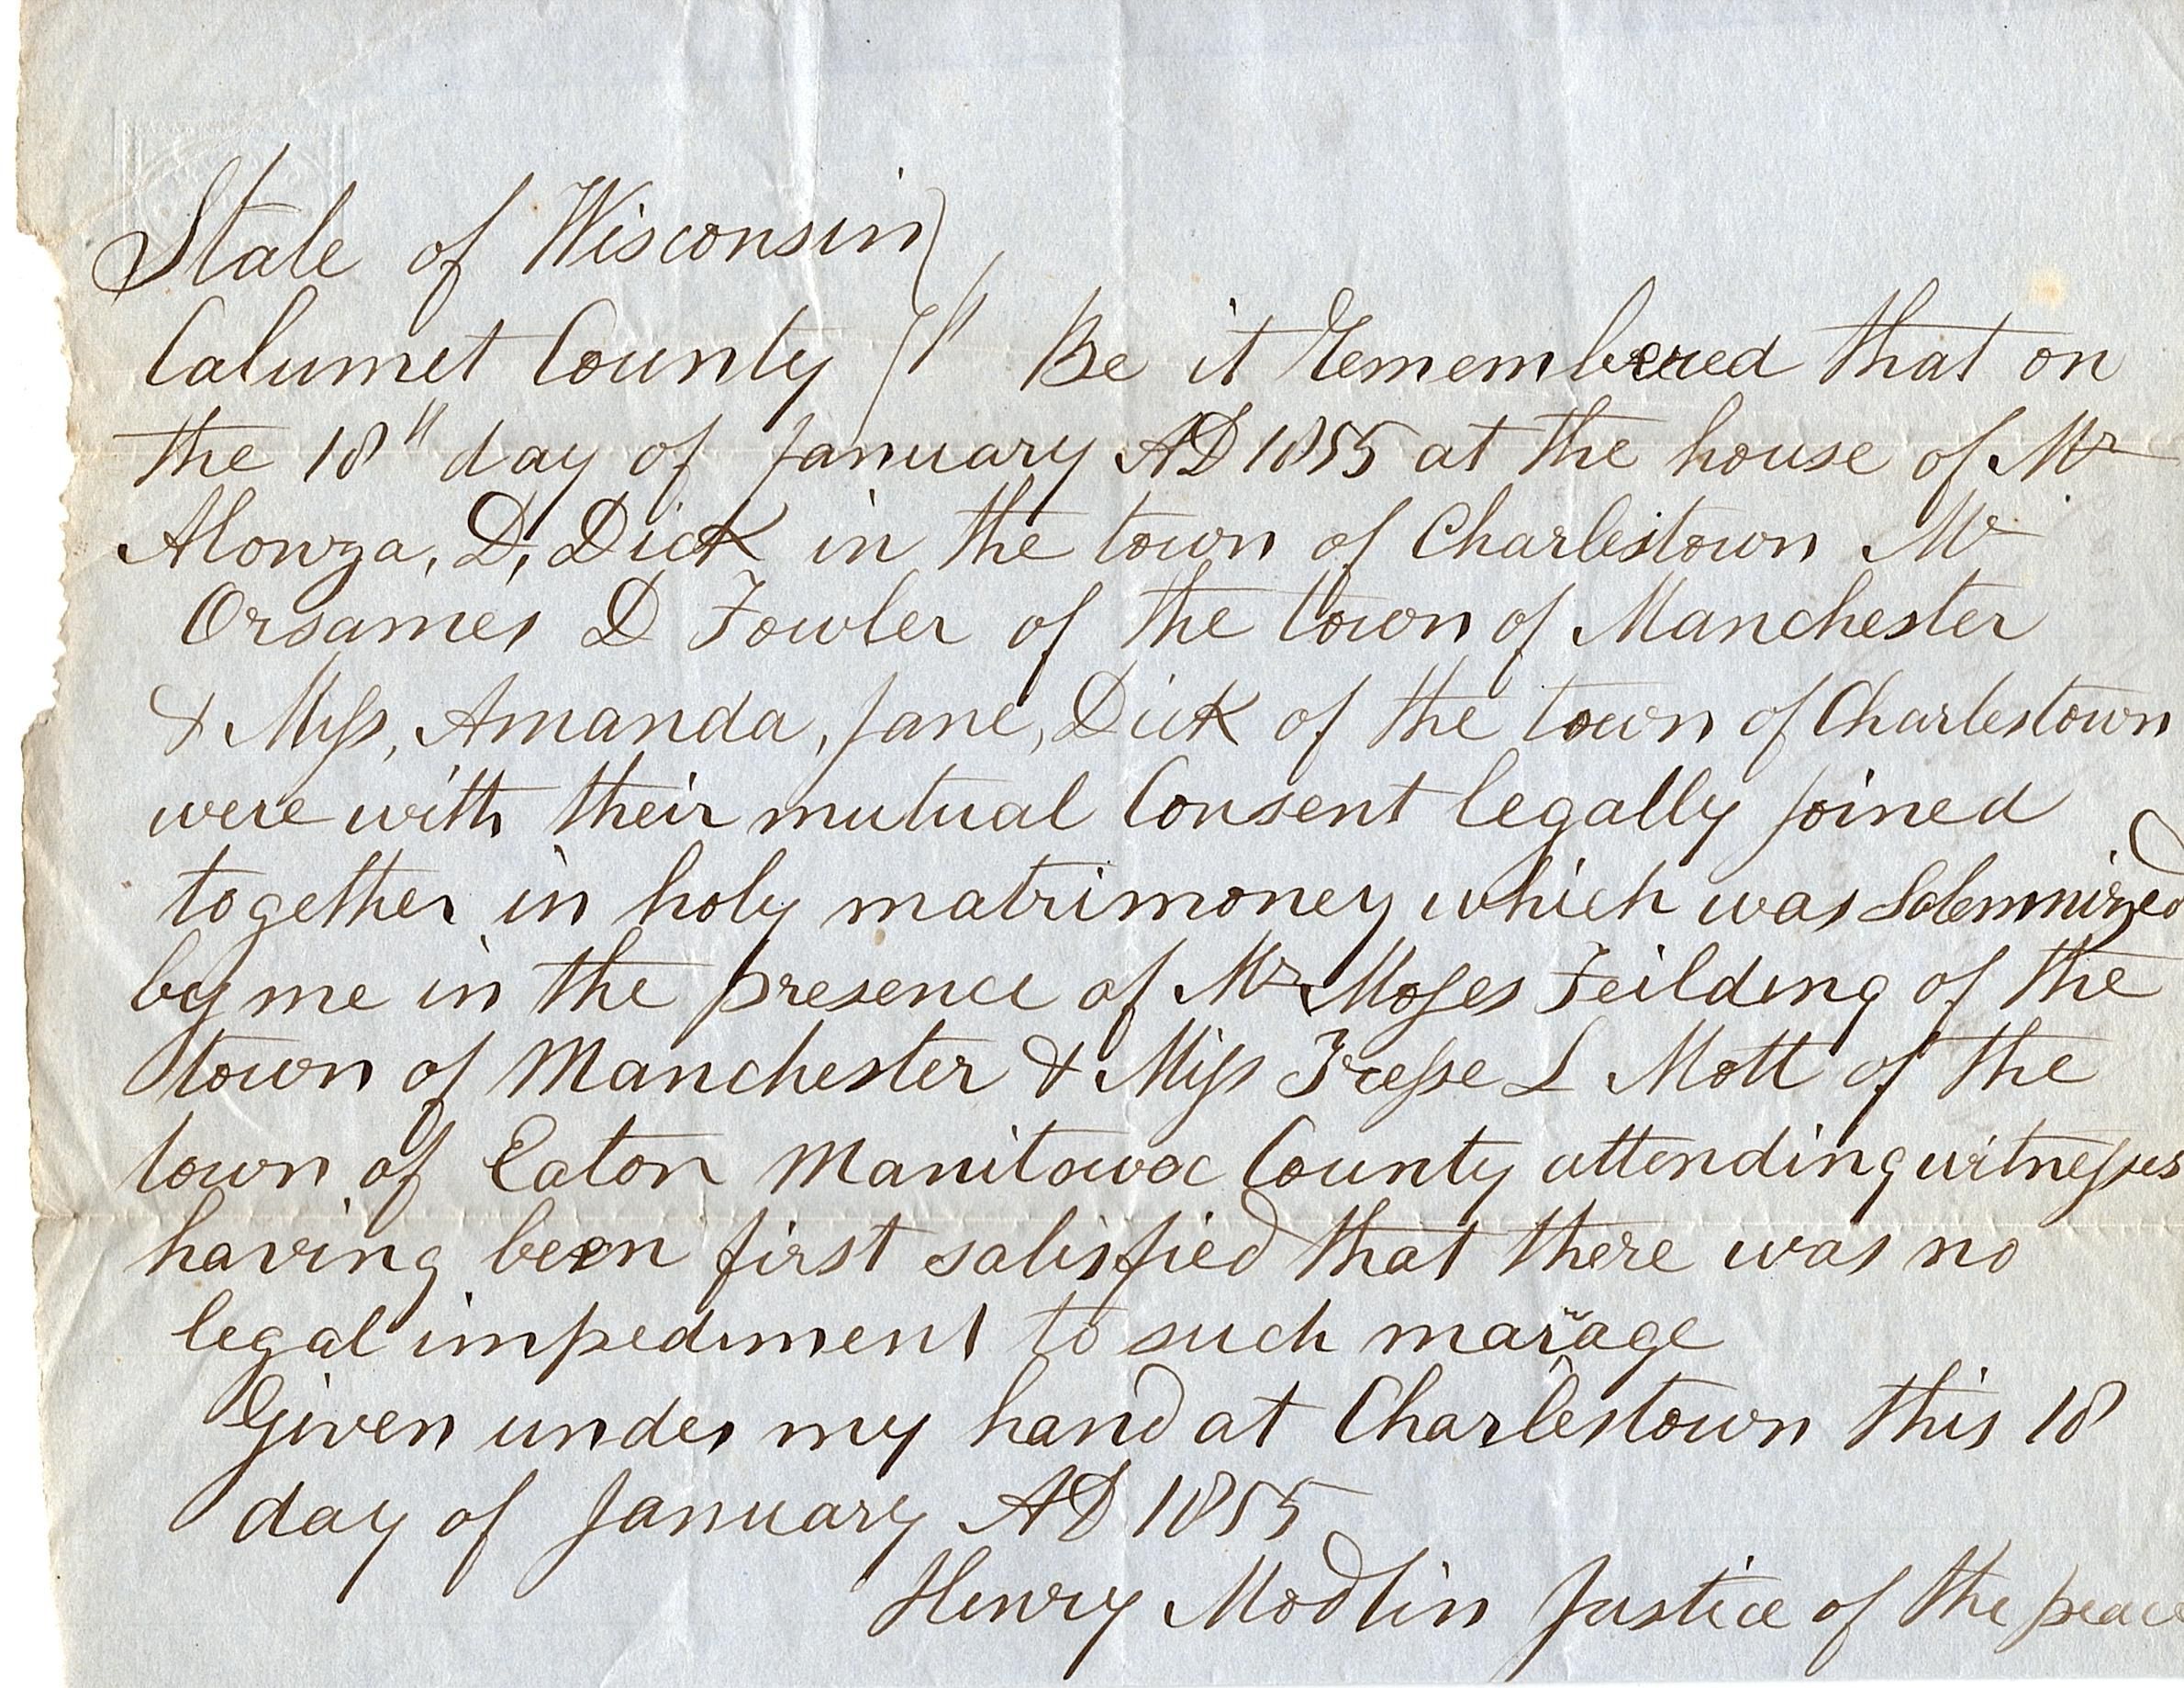 State of Wisconsin
Calumet County } ss Be it remembered that on
the 18th day of January AD 1855 at the house of Mr
Alonza, D, Dick in the town of Charlestown Mr
Orsames D Fowler of the town of Manchester
& Miss, Amanda, Jane, Dick of the town of Charlestown
were with their mutual Consent legally joined
together in holy matrimoney which was Solemnized
by me in the presence of Mr Moses Feilding of the
town of Manchester & Miss L Mott of the
town of Eaton Manitowoc County attending witnesses
having been first satisfied that there was no
legal impediment to such marage
Given under my hand at Charlestown this 18
day of January AD 1855
Henry Modlin Justice of the peace